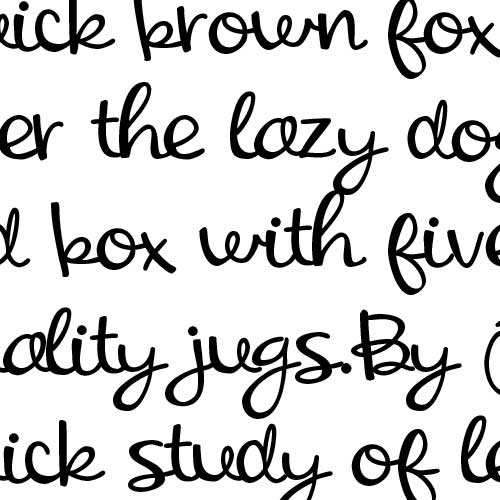 ick brown fox
er the lazy dog
d box with five
ality jugs.By
ick study of le